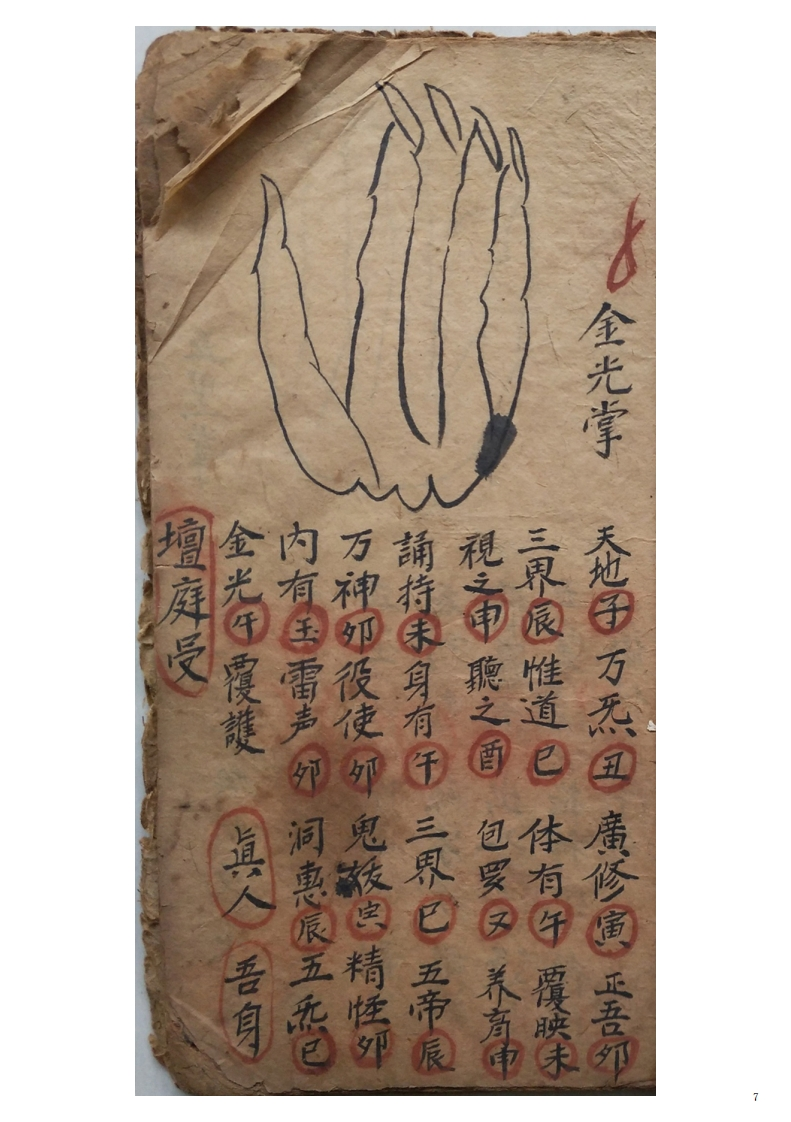 金光掌
天地子 万炁丑 廣修寅 正吾夘
三界辰 惟道巳 体有午 覆映未
視之申 聽之酉 包罗又 养育申
誦持未 身有午 三界巳 五帝辰
万神夘 役使夘 鬼 寅 精怪夘
内有玉 雷声夘 洞惠辰 五炁巳
金光午 覆護 眞人 吾身
壇庭受
7